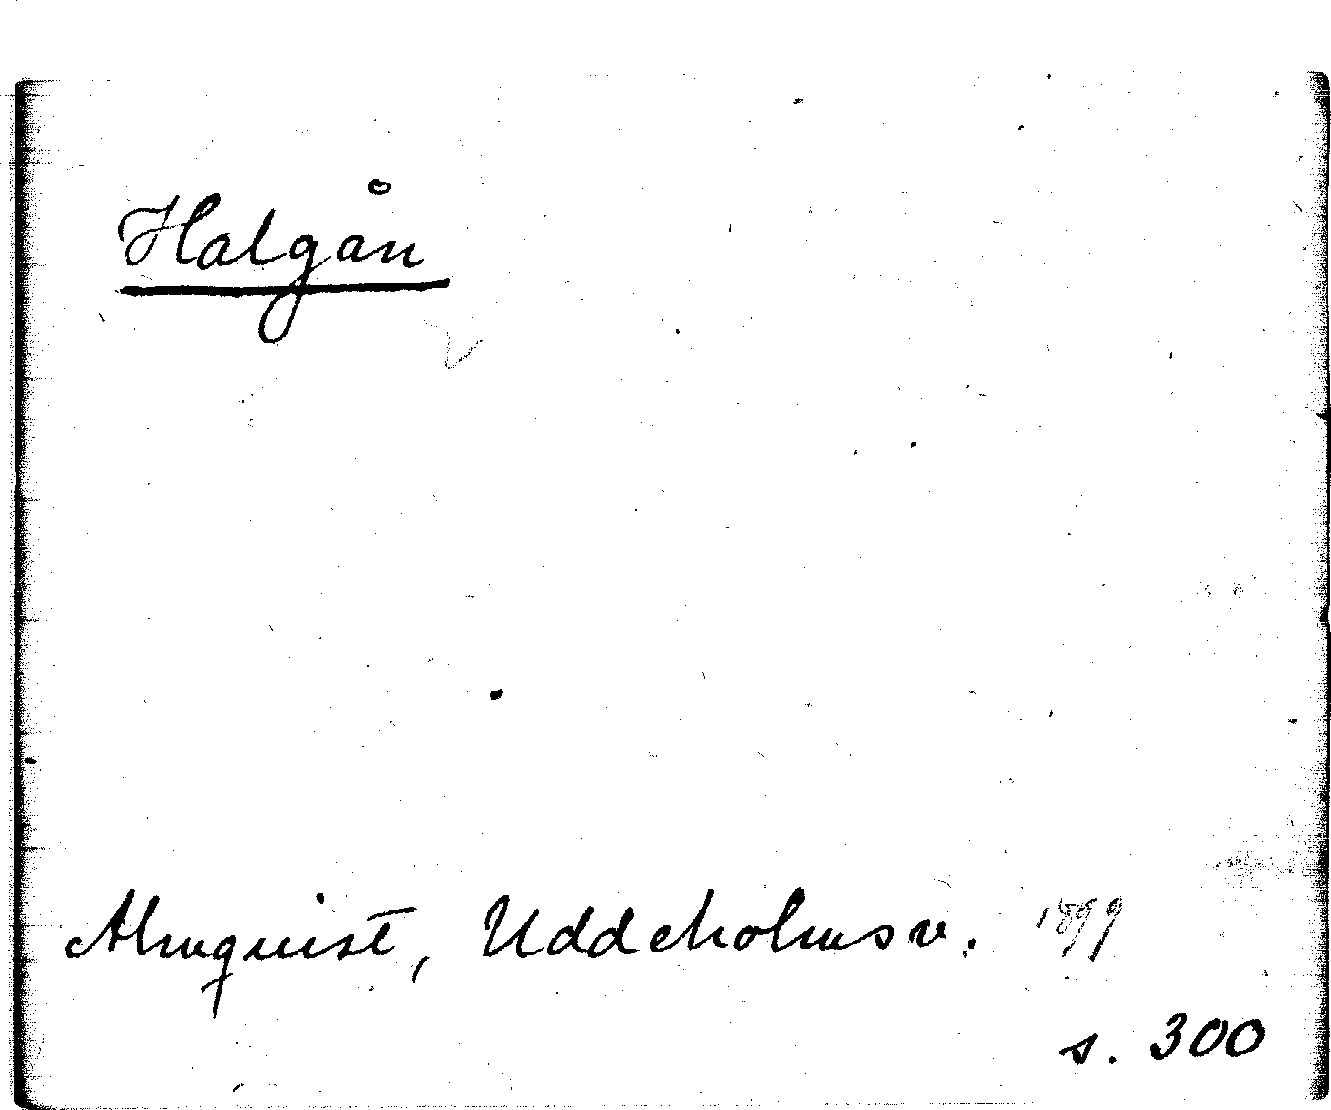 Halgån
Almquist, Uddeholmsv. 1899
s. 300